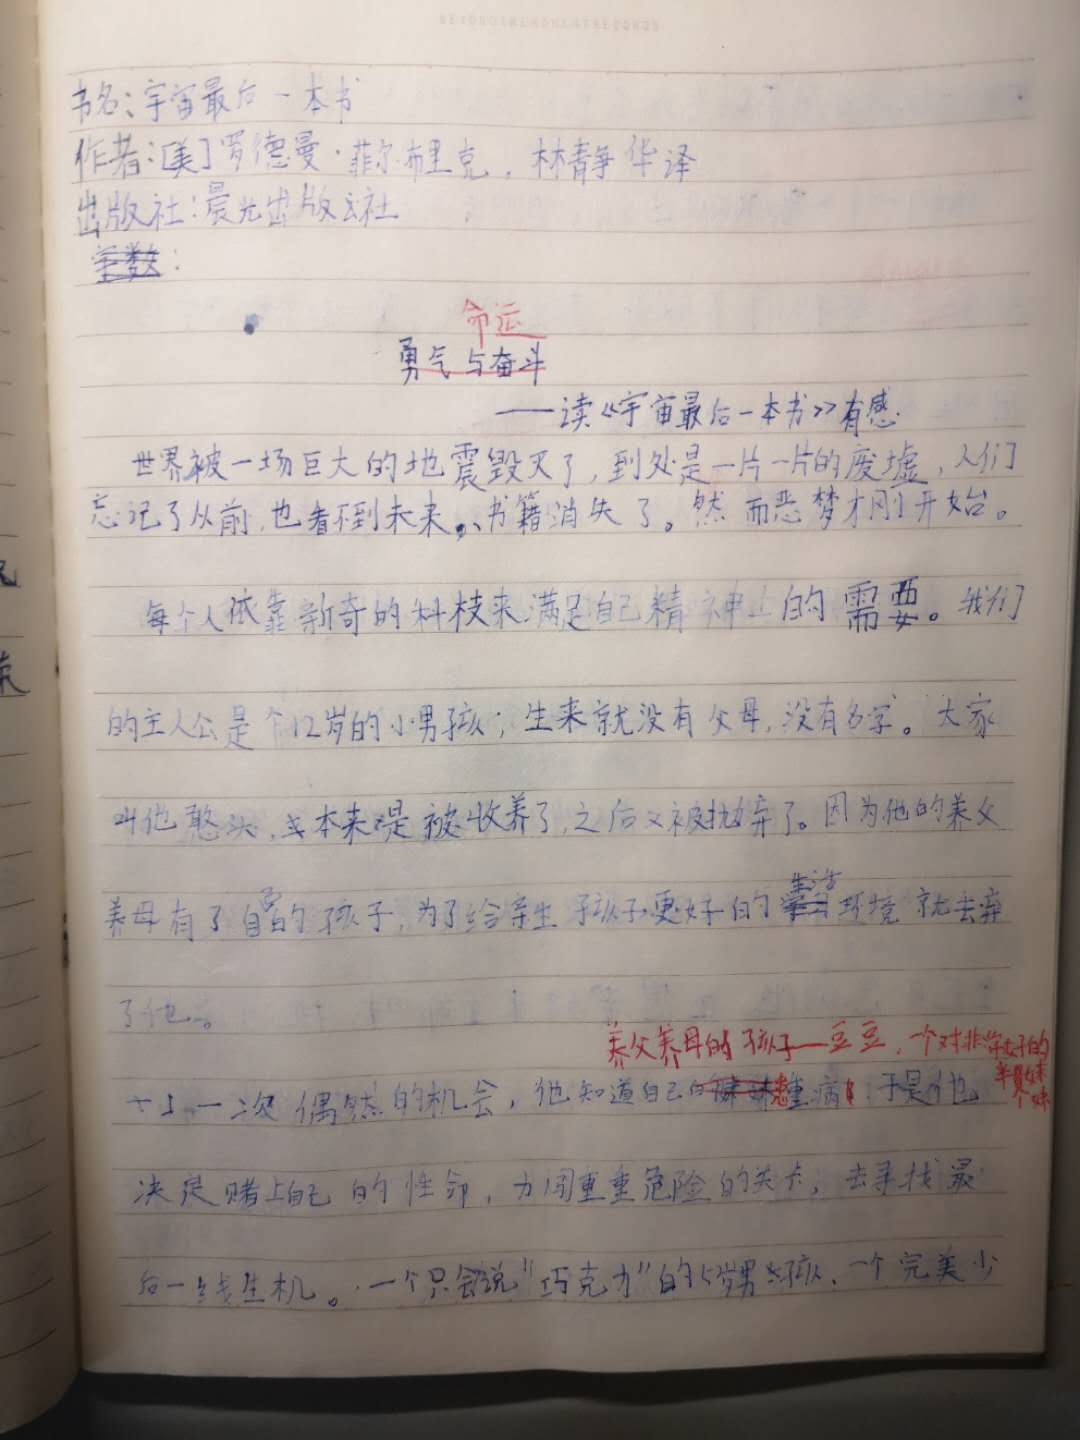 书名：宇宙最后一本书
作者：[美]罗德曼·菲尔布里克，林静华译
出版社：晨光出版社
字数：
命运
勇气与奋斗
——读《宇宙最后一本书》有感
世界被一场巨大的地震毁灭了，到处是一片一片的废墟，人们
忘记了从前，也看不到未来。书籍消失了。然而恶梦才刚开始。
每个人依靠新奇的科技来满足自己精神上的需要。我们
的主人公是个12岁的小男孩；生来就没有父母，没有名字。大家
叫他憨头，本来是被收养了，之后又被抛弃了。因为他的养父
养母有了自己的孩子，为了给亲生孩子更好的生活环境就丢弃
了他。
养父养母的孩子——豆豆，一个对非常好的
一次偶然的机会，他知道自己的妹妹患重病，于是他
决定赌上自己的性命，力闯重重危险的关卡，去寻找最
后一线生机。一个只会说"巧克力"的5岁男孩、一个完美少